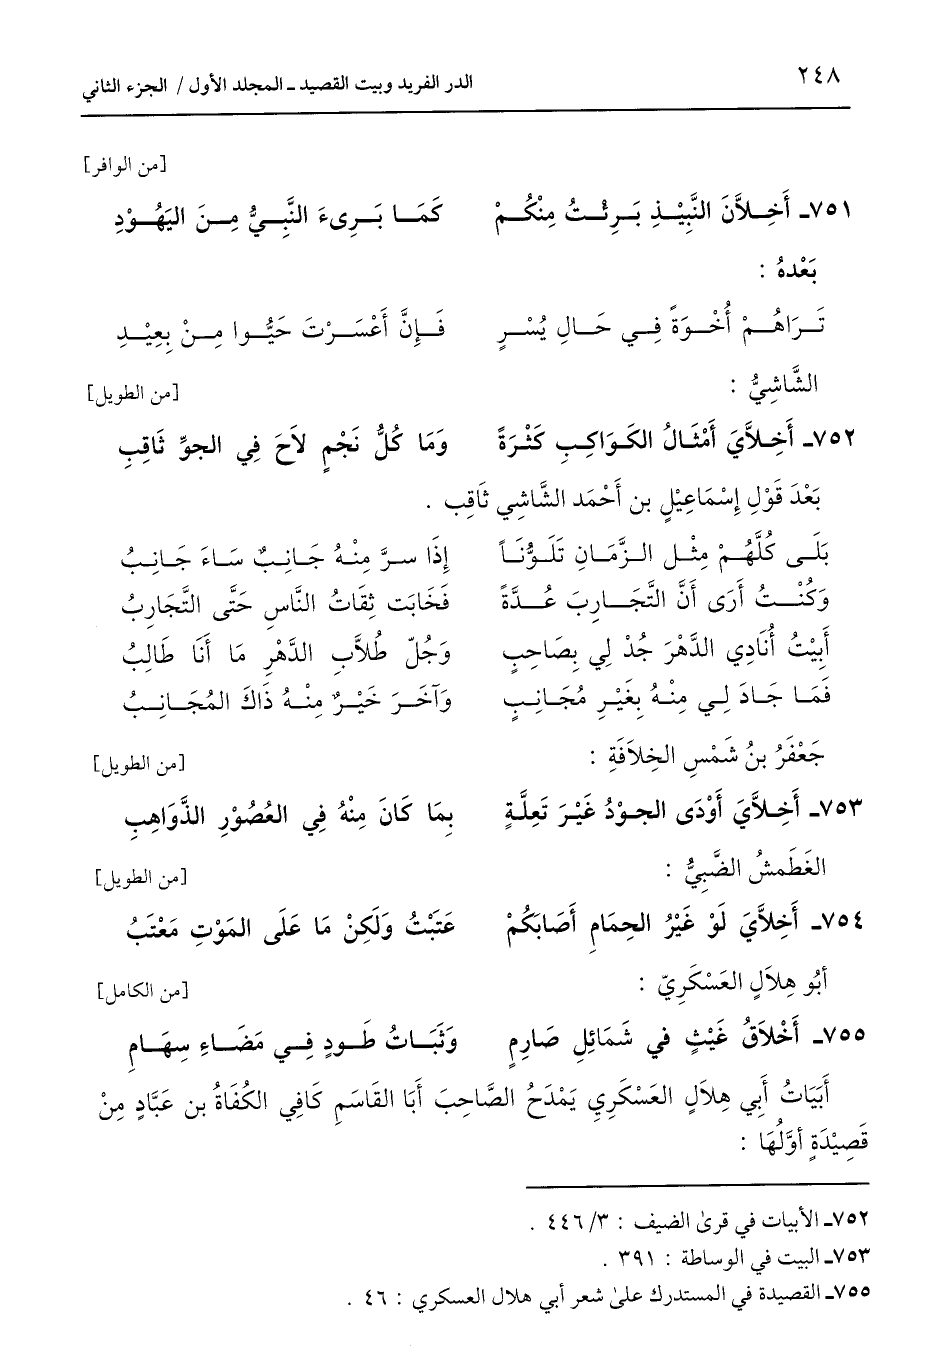 ٢٤٨ الدر الفريد وبيت القصيد ـ المجلد الأول / الجزء الثاني
[من الوافر]
٧٥١ـ أَخِلاَّنَ النَّبِيْذِ بَرِئْتُ مِنْكُمْ كَمَا بَرِىءَ النَّبِيُّ مِنَ اليَهُوْدِ
بَعْدهُ :
تَرَاهُمْ أُخْوَةً فِي حَالِ يُسْرٍ فَإِنَّ أَعْسَرْتَ حَيُّوا مِنْ بِعِيْدِ
الشَّاشِيُّ : [من الطويل]
٧٥٢ـ أَخِلاَّيَ أَمْثَالُ الكَوَاكِبِ كَثْرَةً وَمَا كُلُّ نَجْمٍ لاَحَ فِي الجوِّ ثَاقِبِ
بَعْدَ قَوْلِ إِسْمَاعِيْلِ بن أَحْمَد الشَّاشِي ثَاقِب .
بَلَى كُلَّهُمْ مِثْلِ الزَّمَانِ تَلَوُّنَاً إِذَا سرَّ مِنْهُ جَانِبٌ سَاءَ جَانِبُ
وَكُنْتُ أَرَى أَنَّ التَّجَارِبَ عُدَّةً فَخَابَت ثِقَاتُ النَّاسِ حَتَّى التَّجَارِبُ
أَبِيْتُ أُنَادِي الدَّهْرَ جُدْ لِي بِصَاحِبٍ وَجُلّ طُلاَّبِ الدَّهْرِ مَا أَنَا طَالِبُ
فَمَا جَادَ لِي مِنْهُ بِغَيْرِ مُجَانِبٍ وَآخَرَ خَيْرٌ مِنْهُ ذَاكَ المُجَانِبُ
جَعْفَرُ بنُ شَمْسِ الخِلاَفَةِ : [من الطويل]
٧٥٣ـ أَخِلاَّيَ أَوْدَى الجوْدُ غَيْرَ تَعِلَّةٍ بِمَا كَانَ مِنْهُ فِي العُصُوْرِ الذَّوَاهِبِ
الغَطَمشُ الضَّبيُّ : [من الطويل]
٧٥٤ـ أَخِلاَّيَ لَوْ غَيْرُ الحِمَامِ أَصَابَكُمْ عَتَبْتُ وَلَكِنْ مَا عَلَى المَوْتِ مَعْتَبُ
أَبُو هِلاَلٍ العَسْكَرِيّ : [من الكامل]
٧٥٥ـ أَخْلاَقُ غَيْثٍ في شَمَائِلِ صَارِمٍ وَثَبَاتُ طَودٍ فِي مَضَاءِ سِهَامِ
أَبَيَاتُ أَبِي هِلاَلٍ العَسْكَرِي يَمْدَحُ الصَّاحِبَ أَبَا القَاسَمِ كَافِي الكُفَاةُ بن عَبَّادٍ مِنْ
قَصِيْدَةٍ أَوَّلُهَا :
٧٥٢ـ الأبيات في قرىٰ الضيف : ٣/ ٤٤٦ .
٧٥٣ـ البيت في الوساطة : ٣٩١ .
٧٥٥ـ القصيدة في المستدرك علىٰ شعر أبي هلال العسكري : ٤٦ .